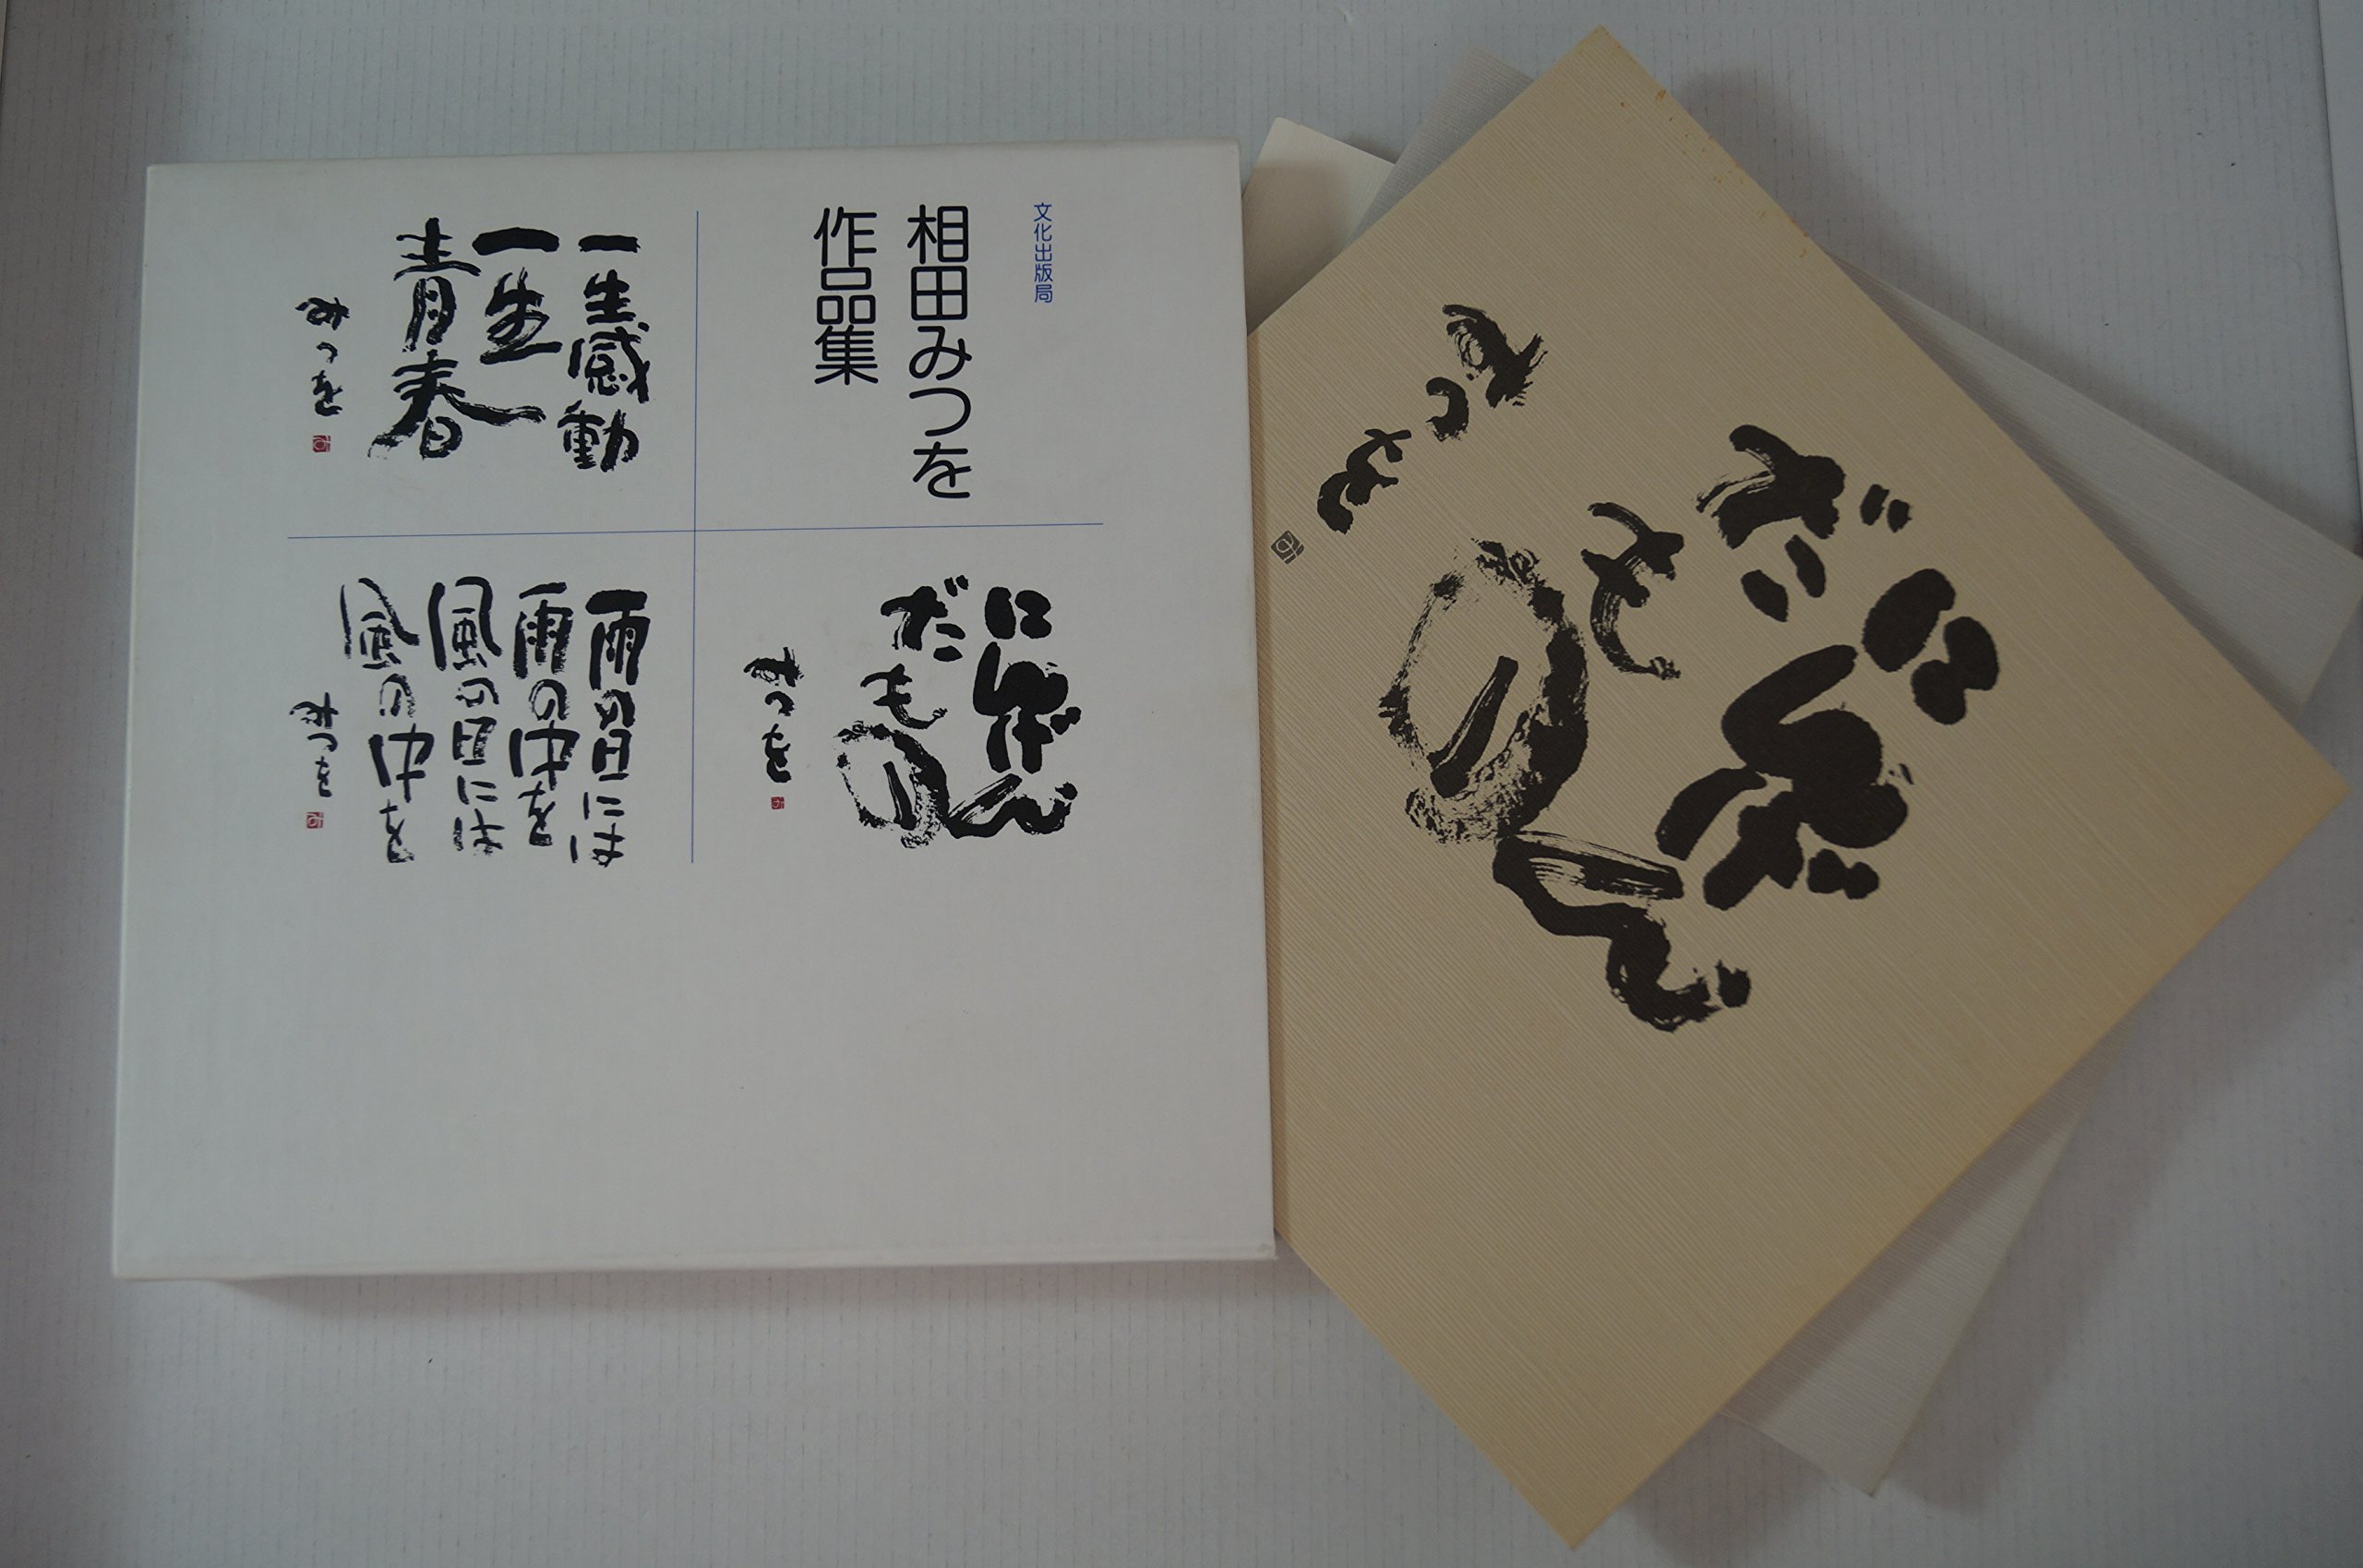 文化出版局
相田みつを
作品集
一生感動
一生
青春
みつを
にんげん
だもの
みつを
雨の日には
雨の中を
風の日には
風の中を
みつを
にんげん
だもの
みつを